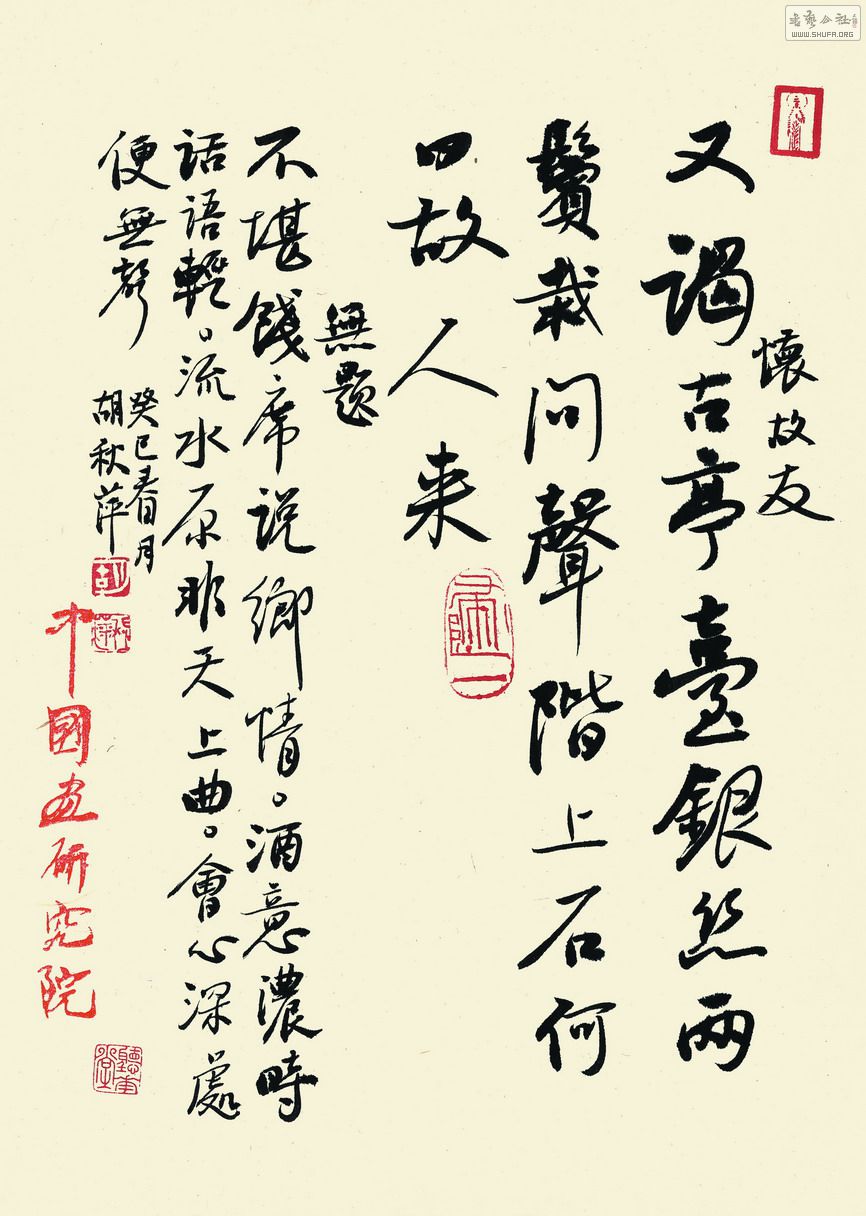 懷故友
又謁古亭臺銀絲兩
鬢栽問聲階上石何
日故人来
無題
不堪餞席説鄉情。酒意濃時
話語輕。流水原非天上曲。會心深處
便無聲
癸巳春月
胡秋萍
中國画研究院
WWW.SHUFA.ORG